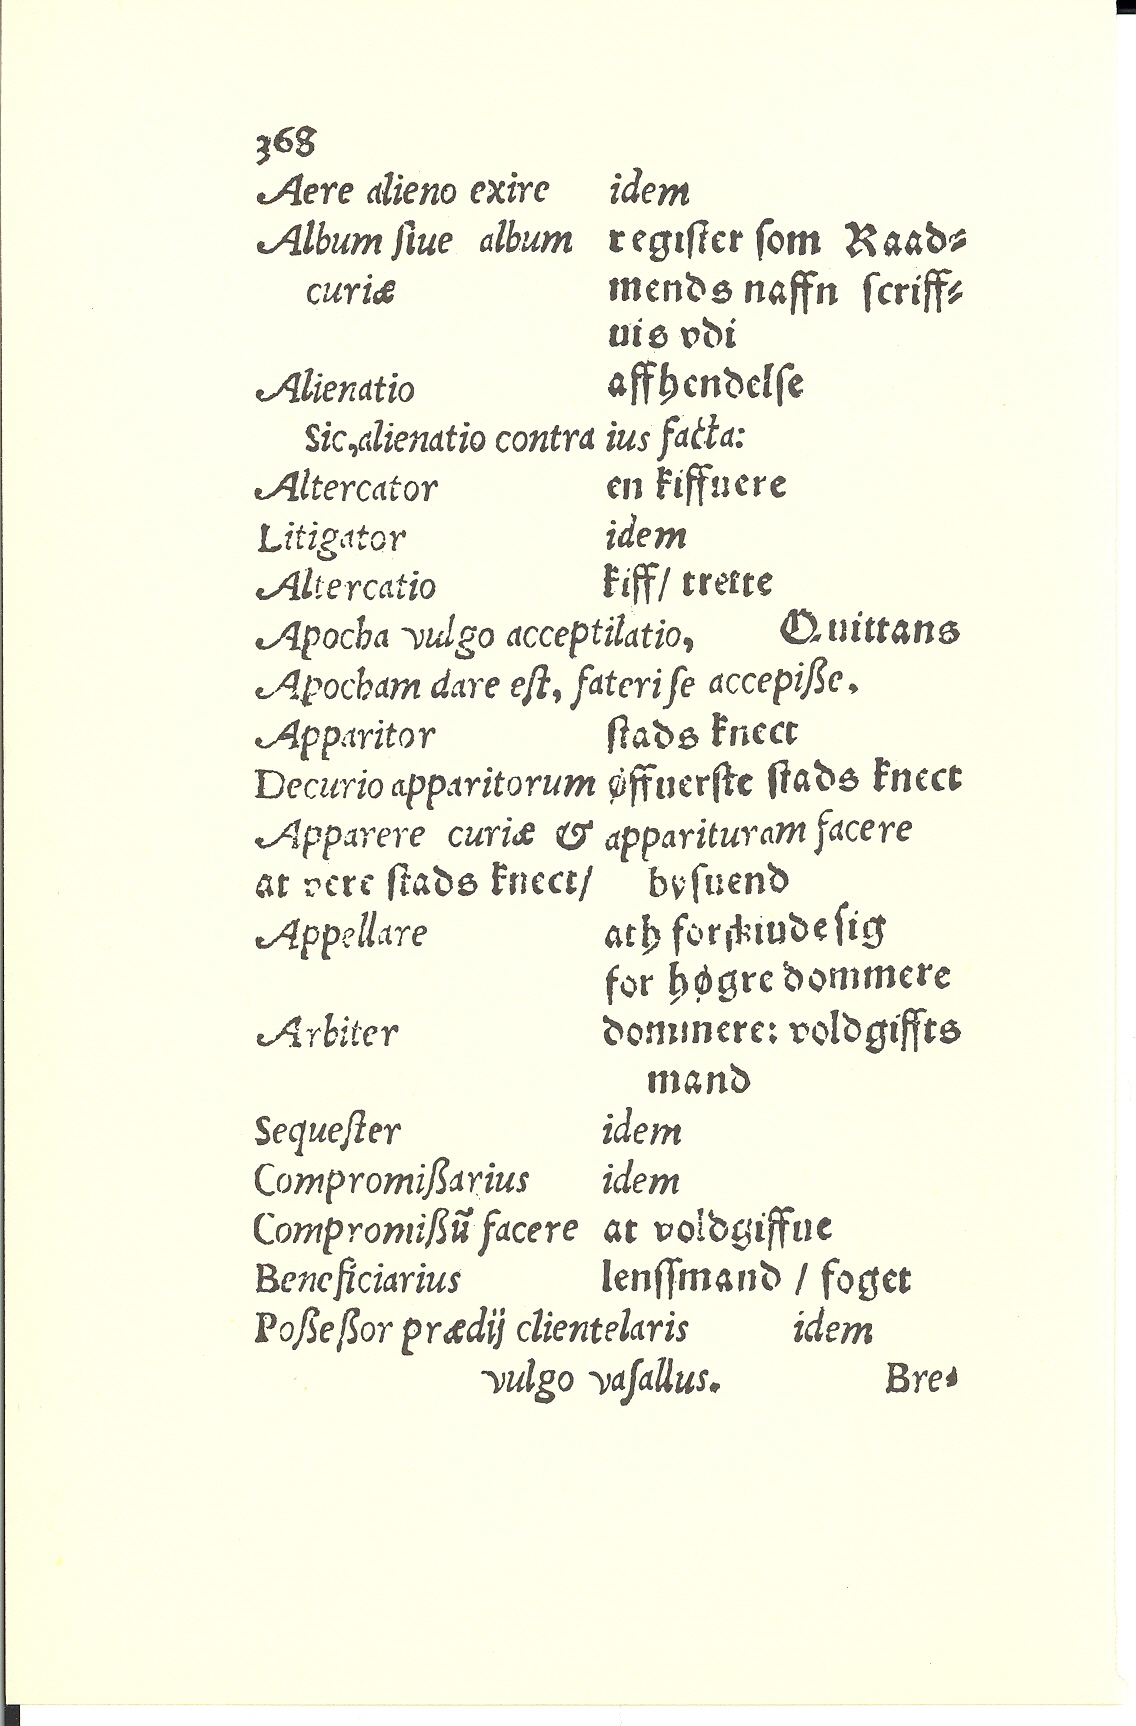 368
Aere alieno exire idem
Album ſiue album regiſter ſom Raad⸗
curiæ mends naffn ſcriff⸗
uis vdi
Alienatio affhendelſe
Sic, alienatio contra ius facta:
Altercator en kiffuere
Litigator idem
Altercatio kiff/ trette
Apocha vulgo acceptilatio, Quittans
Apocham dare eſt, fateri ſe accepiße.
Apparitor ſtads knect
Decurio apparitorum øffuerſte ſtads knect
Apparere curiæ & apparituram facere
at vere ſtads knect/ byſuend
Appellare ath forſkiude ſig
for høgre dommere
Arbiter dommere: voldgiffts
mand
Sequeſter idem
Compromißarius idem
Compromißũ facere at voldgiffue
Beneficiarius lenſſmand / foget
Poßeßor prædij clientelaris idem
vulgo vaſallus. Bre⸗